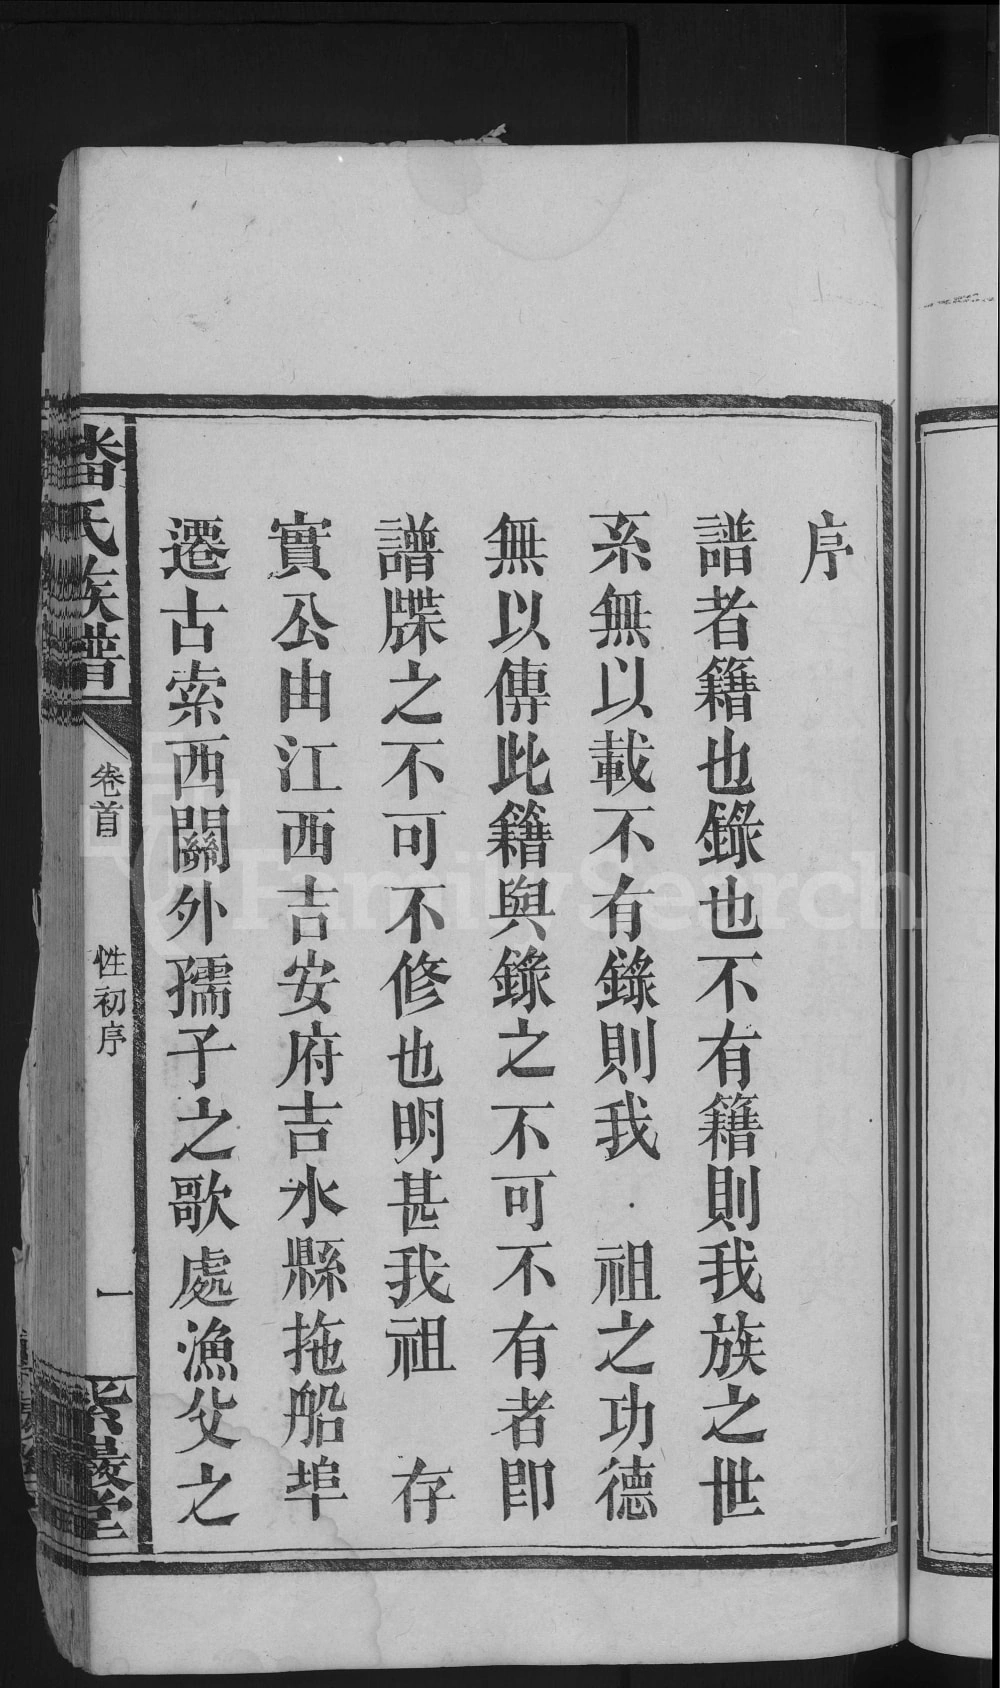 序
譜者籍也錄也不有籍則我族之世
系無以載不有錄則我　祖之功德
無以傳此籍與錄之不可不有者卽
譜牒之不可不修也明甚我祖　存
實公由江西吉安府吉水縣拖船埠
遷古索西關外孺子之歌處漁父之
潘氏族譜
卷首
性初序
一
紫巖堂
FamilySearch